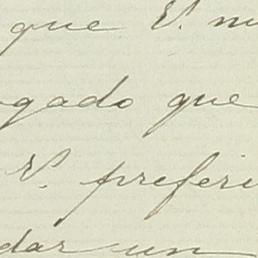 que V. m
gado que
V. preferi
dar un